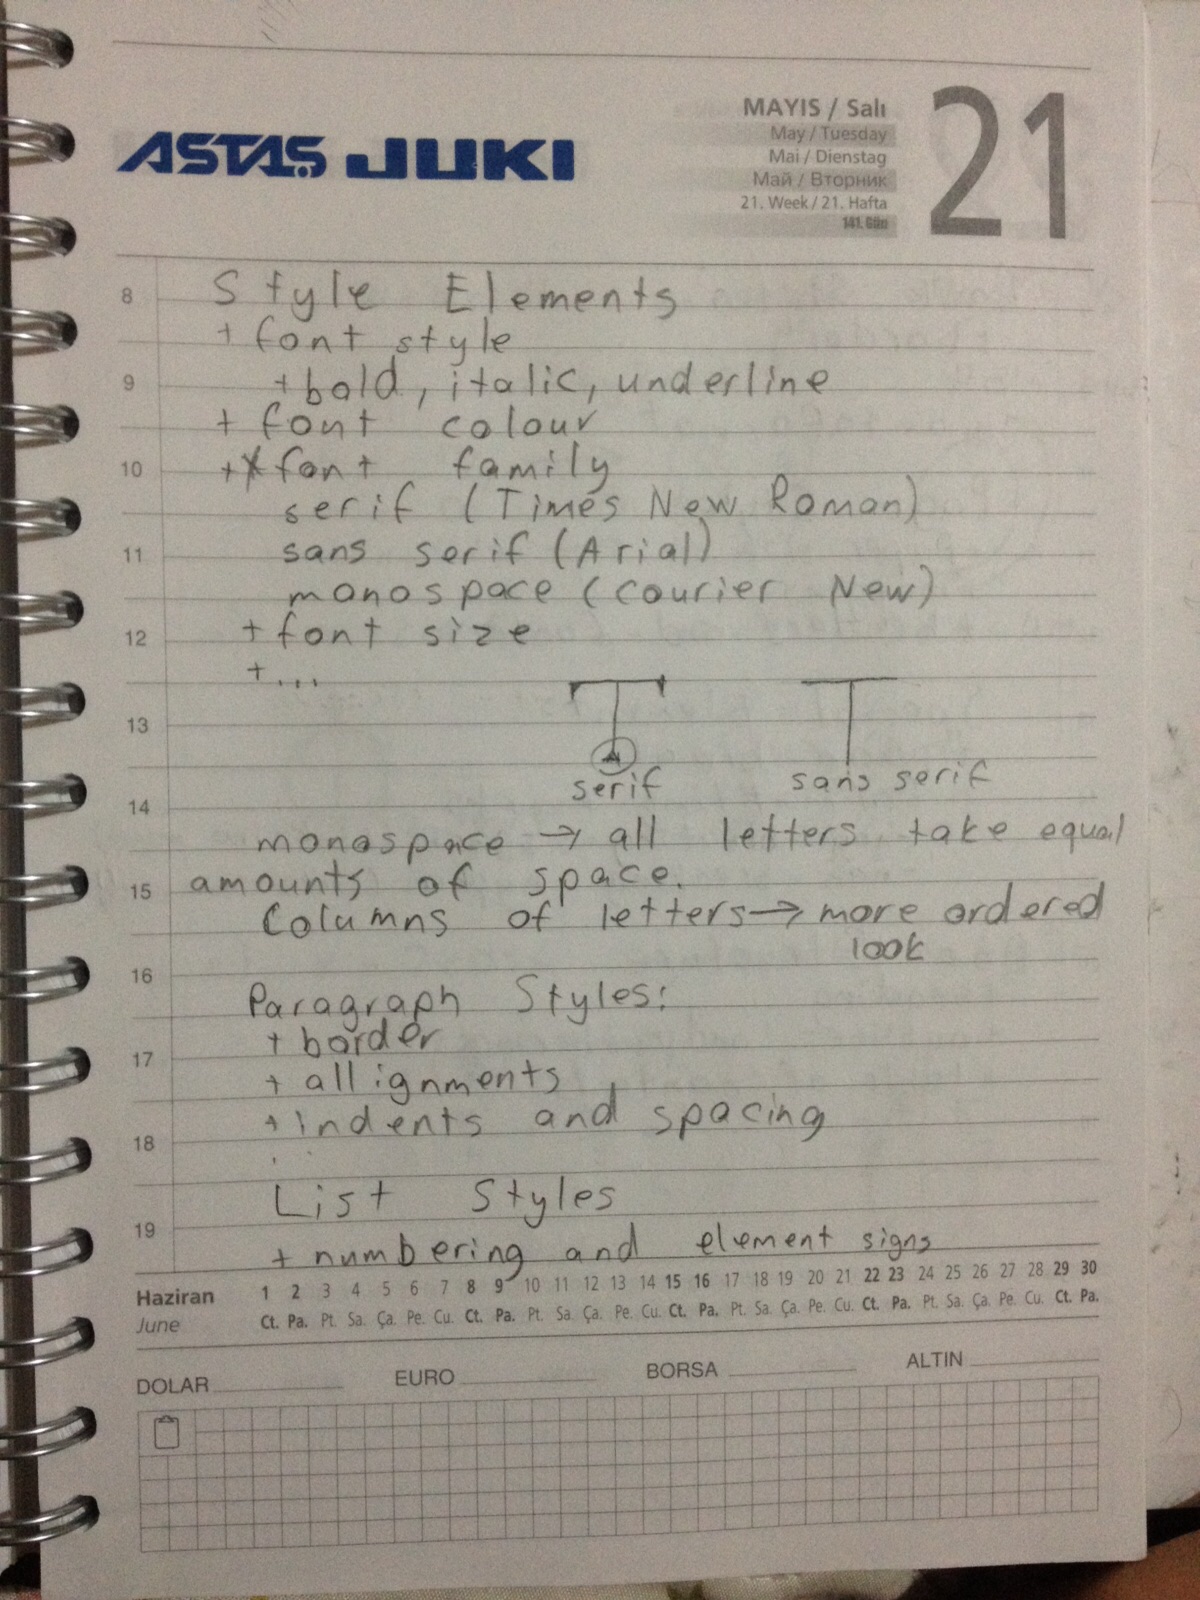 ASTAŞ JUKI
MAYIS / Salı
May / Tuesday
Mai / Dienstag
Май / Вторник
21. Week / 21. Hafta
141. Gün
21
8 Style Elements
+ font style
9 + bold, italic, underline
+ font colour
10 + font family
serif (Times New Roman)
11 sans serif (Arial)
monospace (Courier New)
12 + font size
+...
13
serif sans serif
14
monospace → all letters take equal
15 amounts of space.
Columns of letters → more ordered
look
16
Paragraph Styles:
+ border
17
+ allignments
+ indents and spacing
18
List Styles
19
+ numbering and element signs
Haziran 1 2 3 4 5 6 7 8 9 10 11 12 13 14 15 16 17 18 19 20 21 22 23 24 25 26 27 28 29 30
June Ct. Pa. Pt. Sa. Ça. Pe. Cu. Ct. Pa. Pt. Sa. Ça. Pe. Cu. Ct. Pa. Pt. Sa. Ça. Pe. Cu. Ct. Pa. Pt. Sa. Ça. Pe. Cu. Ct. Pa.
DOLAR EURO BORSA ALTIN